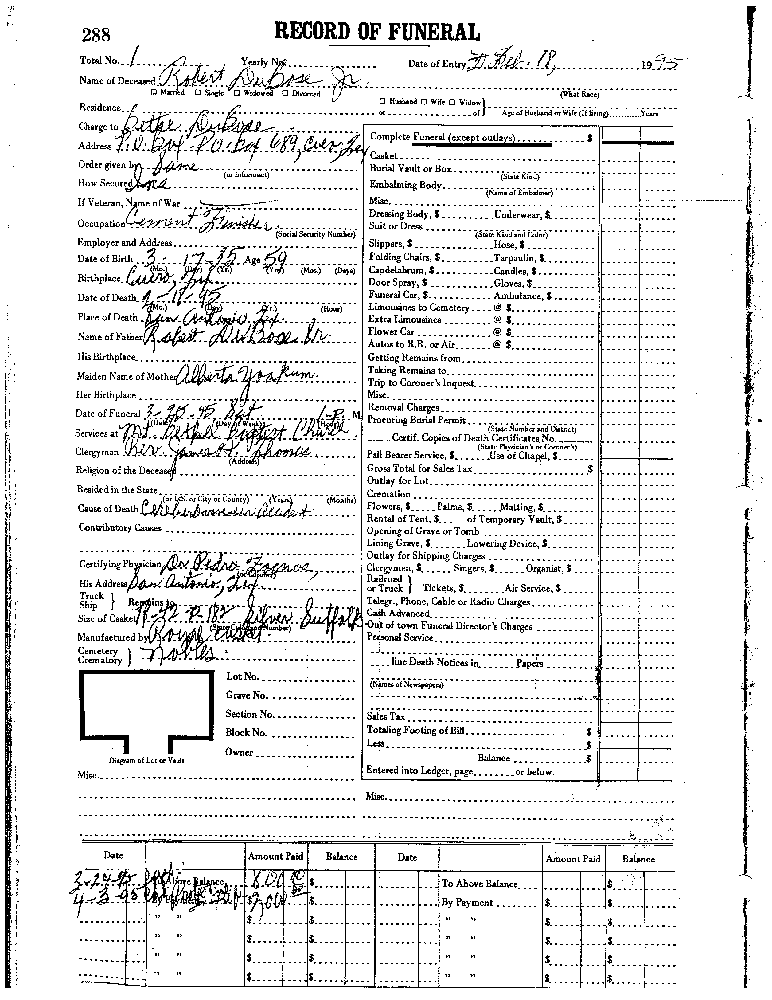 288
RECORD OF FUNERAL
Total No. 1 Yearly No. Date of Entry Feb. 18, 1995
Name of Deceased Robert DuBose Jr.
☐ Married ☐ Single ☐ Widowed ☐ Divorced (What Race)
Residence ☐ Husband ☐ Wife ☐ Widow
or of Age of Husband or Wife (if living) Years
Charge to Bethe DuBose
Address P.O. Box P.O. Box 689, Cuero, Tex
Order given by Same
(or informant)
How Secured
If Veteran, Name of War
Occupation Cement Finisher
(Social Security Number)
Employer and Address
Date of Birth 3-17-35 Age 59
(Mo.) (Day) (Yr.) (Yrs.) (Mos.) (Days)
Birthplace Cuero, Tex.
Date of Death -18-95
(Mo.) (Day) (Yr.) (Hour)
Place of Death San Antonio, Tex.
Name of Father Robert DuBose Sr.
His Birthplace
Maiden Name of Mother Alberta Yoakum
Her Birthplace
Date of Funeral -95 Sat 1-P. M.
(Date) (Day of Week) (Hour)
Services at Mt. Bethel Baptist Church
Clergyman Rev. James Thomas
(Address)
Religion of the Deceased
Resided in the State
(or U.S. or City or County) (Years) (Months)
Cause of Death
Contributory Causes
Certifying Physician Dr. Pedro
His Address San Antonio, Tex
Truck
Ship } Remains to
Size of Casket Silver Suffolk
(State Color and Number)
Manufactured by Royal Casket
Cemetery
Crematory } Nobles
Lot No.
Grave No.
Section No.
Block No.
Owner
Diagram of Lot or Vault
Misc.
Complete Funeral (except outlays) $
Casket
Burial Vault or Box
(State Kind)
Embalming Body
(Name of Embalmer)
Misc.
Dressing Body, $ Underwear, $
Suit or Dress
(State Kind and Color)
Slippers, $ Hose, $
Folding Chairs, $ Tarpaulin, $
Candelabrum, $ Candles, $
Door Spray, $ Gloves, $
Funeral Car, $ Ambulance, $
Limousines to Cemetery @ $
Extra Limousines @ $
Flower Car @ $
Autos to R.R. or Air @ $
Getting Remains from
Taking Remains to
Trip to Coroner's Inquest
Misc.
Removal Charges
Procuring Burial Permit
(State Number and District)
Certif. Copies of Death Certificates No.
(State Physician's or Coroner's)
Pall Bearer Service, $ Use of Chapel, $
Gross Total for Sales Tax $
Outlay for Lot
Cremation
Flowers, $ Palms, $ Matting, $
Rental of Tent, $ of Temporary Vault, $
Opening of Grave or Tomb
Lining Grave, $ Lowering Device, $
Outlay for Shipping Charges
Clergymen, $ Singers, $ Organist, $
Railroad
or Truck } Tickets, $ Air Service, $
Telegr., Phone, Cable or Radio Charges
Cash Advanced
Out of town Funeral Director's Charges
Personal Service
line Death Notices in Papers
(Names of Newspapers)
Sales Tax
Totaling Footing of Bill $
Less $
Balance $
Entered into Ledger, page or below.
Misc.
Date Amount Paid Balance Date Amount Paid Balance
-24-95 Above Balance $ To Above Balance $
4-3-95 $ By Payment $ $
" " $ $ " " $ $
" " $ $ " " $ $
" " $ $ " " $ $
" " $ $ " " $ $